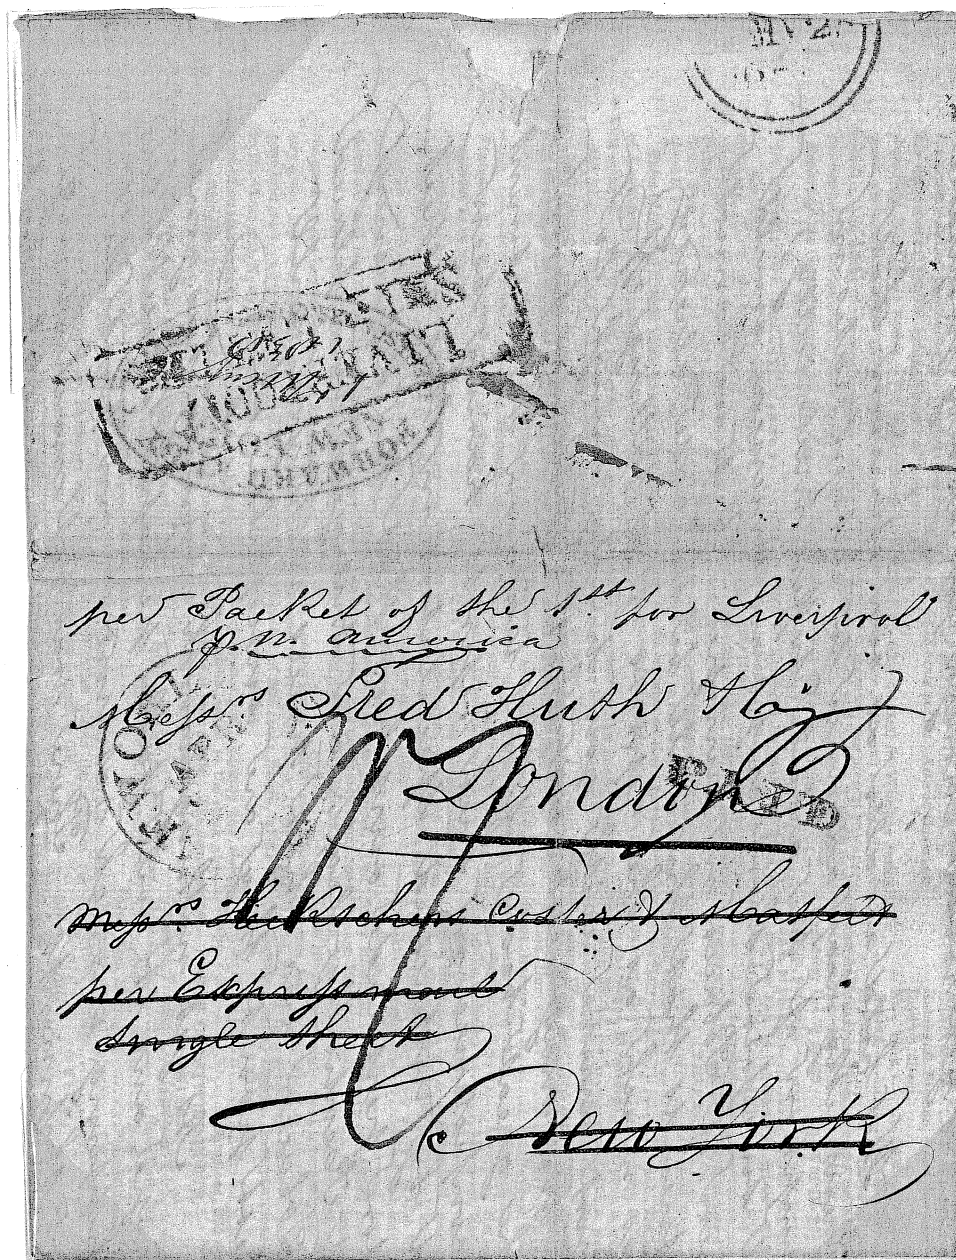 LIVERPOOL
FORWARD
NEW
per Packet of the 1st for Liverpool
p. N. America
Messrs Fred Huth & Co
London
PAID
NEW YORK
MAR
Messrs Heckscher Coster & Matfeld
per Express mail
Single Sheet
New York